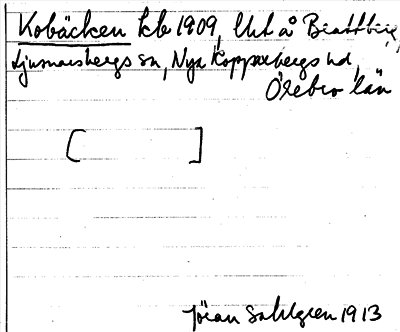 Kobäcken kb 1909, Utt å Brattberg,
Ljusnarsbergs sn, Nya Kopparbergs hd,
Örebro län
[ ]
Jöran Sahlgren 1913